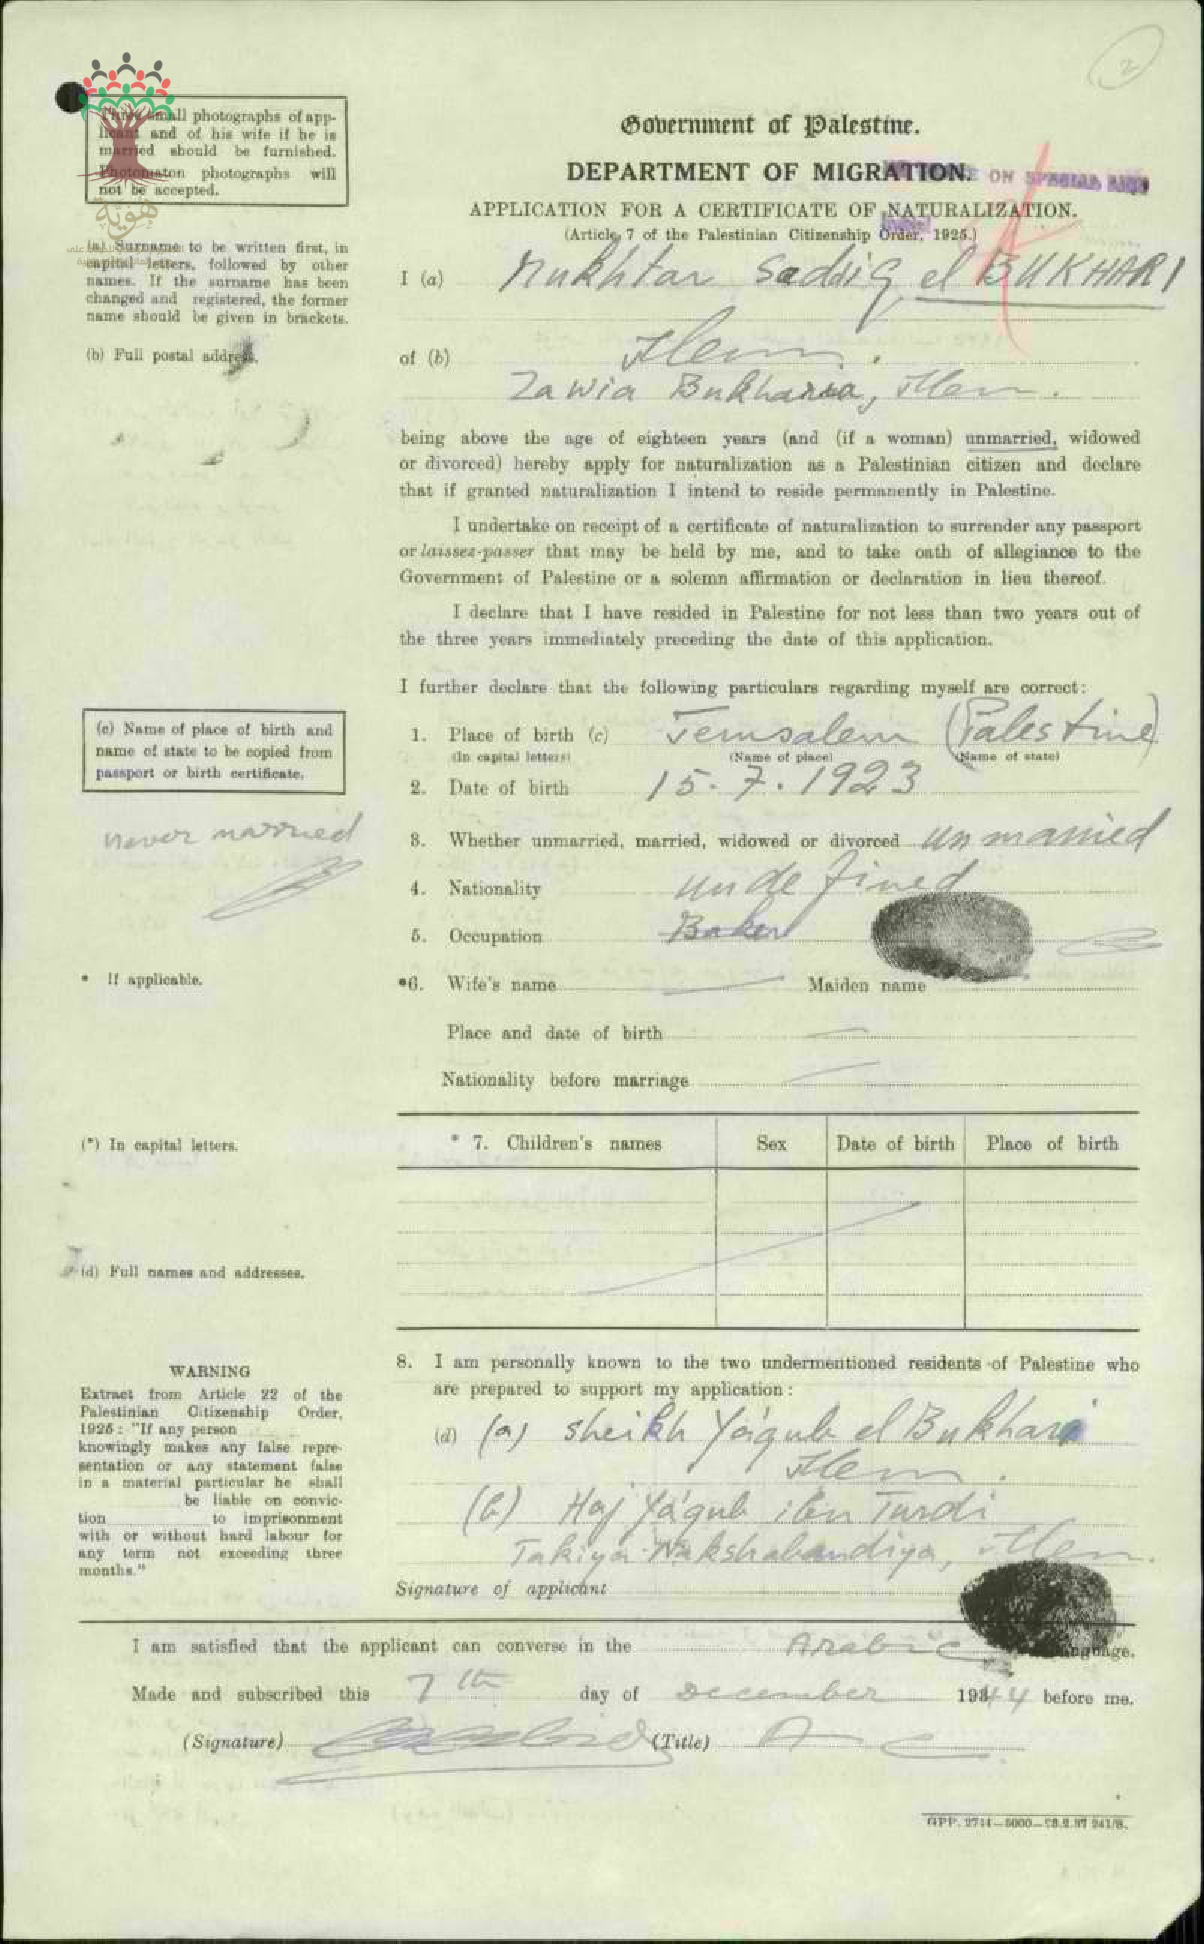 2
Three small photographs of app-
licant and of his wife if he is
married should be furnished.
Photomaton photographs will
not be accepted.
هويّة
Government of Palestine.
DEPARTMENT OF MIGRATION.
ON SPECIAL
APPLICATION FOR A CERTIFICATE OF NATURALIZATION.
(Article 7 of the Palestinian Citizenship Order, 1925.)
(a) Surname to be written first, in
capital letters, followed by other
names. If the surname has been
changed and registered, the former
name should be given in brackets.
I (a) Mukhtar Saddiq el BUKHARI
(b) Full postal address.
of (b) Jlem.
Zawia Bukharia, Jlem.
being above the age of eighteen years (and (if a woman) unmarried, widowed
or divorced) hereby apply for naturalization as a Palestinian citizen and declare
that if granted naturalization I intend to reside permanently in Palestine.
I undertake on receipt of a certificate of naturalization to surrender any passport
or laissez-passer that may be held by me, and to take oath of allegiance to the
Government of Palestine or a solemn affirmation or declaration in lieu thereof.
I declare that I have resided in Palestine for not less than two years out of
the three years immediately preceding the date of this application.
I further declare that the following particulars regarding myself are correct:
(c) Name of place of birth and
name of state to be copied from
passport or birth certificate.
1. Place of birth (c) Jerusalem (Palestine)
(In capital letters) (Name of place) (Name of state)
2. Date of birth 15.7.1923
never married
3. Whether unmarried, married, widowed or divorced unmarried
4. Nationality undefined
5. Occupation Baker
* If applicable.
*6. Wife's name Maiden name
Place and date of birth
Nationality before marriage
(*) In capital letters.
* 7. Children's names Sex Date of birth Place of birth
(d) Full names and addresses.
8. I am personally known to the two undermentioned residents of Palestine who
are prepared to support my application:
(d) (a) Sheikh Ya'qub el Bukhari
Jlem.
(b) Haj Ya'qub ibn Turdi
Takiya Nakshabandiya, Jlem.
WARNING
Extract from Article 22 of the
Palestinian Citizenship Order,
1925: "If any person
knowingly makes any false repre-
sentation or any statement false
in a material particular he shall
be liable on convic-
tion to imprisonment
with or without hard labour for
any term not exceeding three
months."
Signature of applicant
I am satisfied that the applicant can converse in the Arabic language.
Made and subscribed this 7th day of December 1944 before me.
(Signature) (Title) A C.
GPP. 2744—5000—23.2.37 241/S.